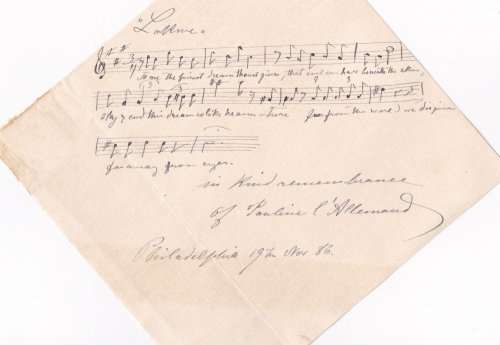 "Lakme"
To me the fairest dream thou'st given, that soul can have beneath the
and this dream is like heaven - here far from the world we
far away from eyes.
in kind remembrance
of Pauline l'Allemand
Philadelphia 19th Nov 86.